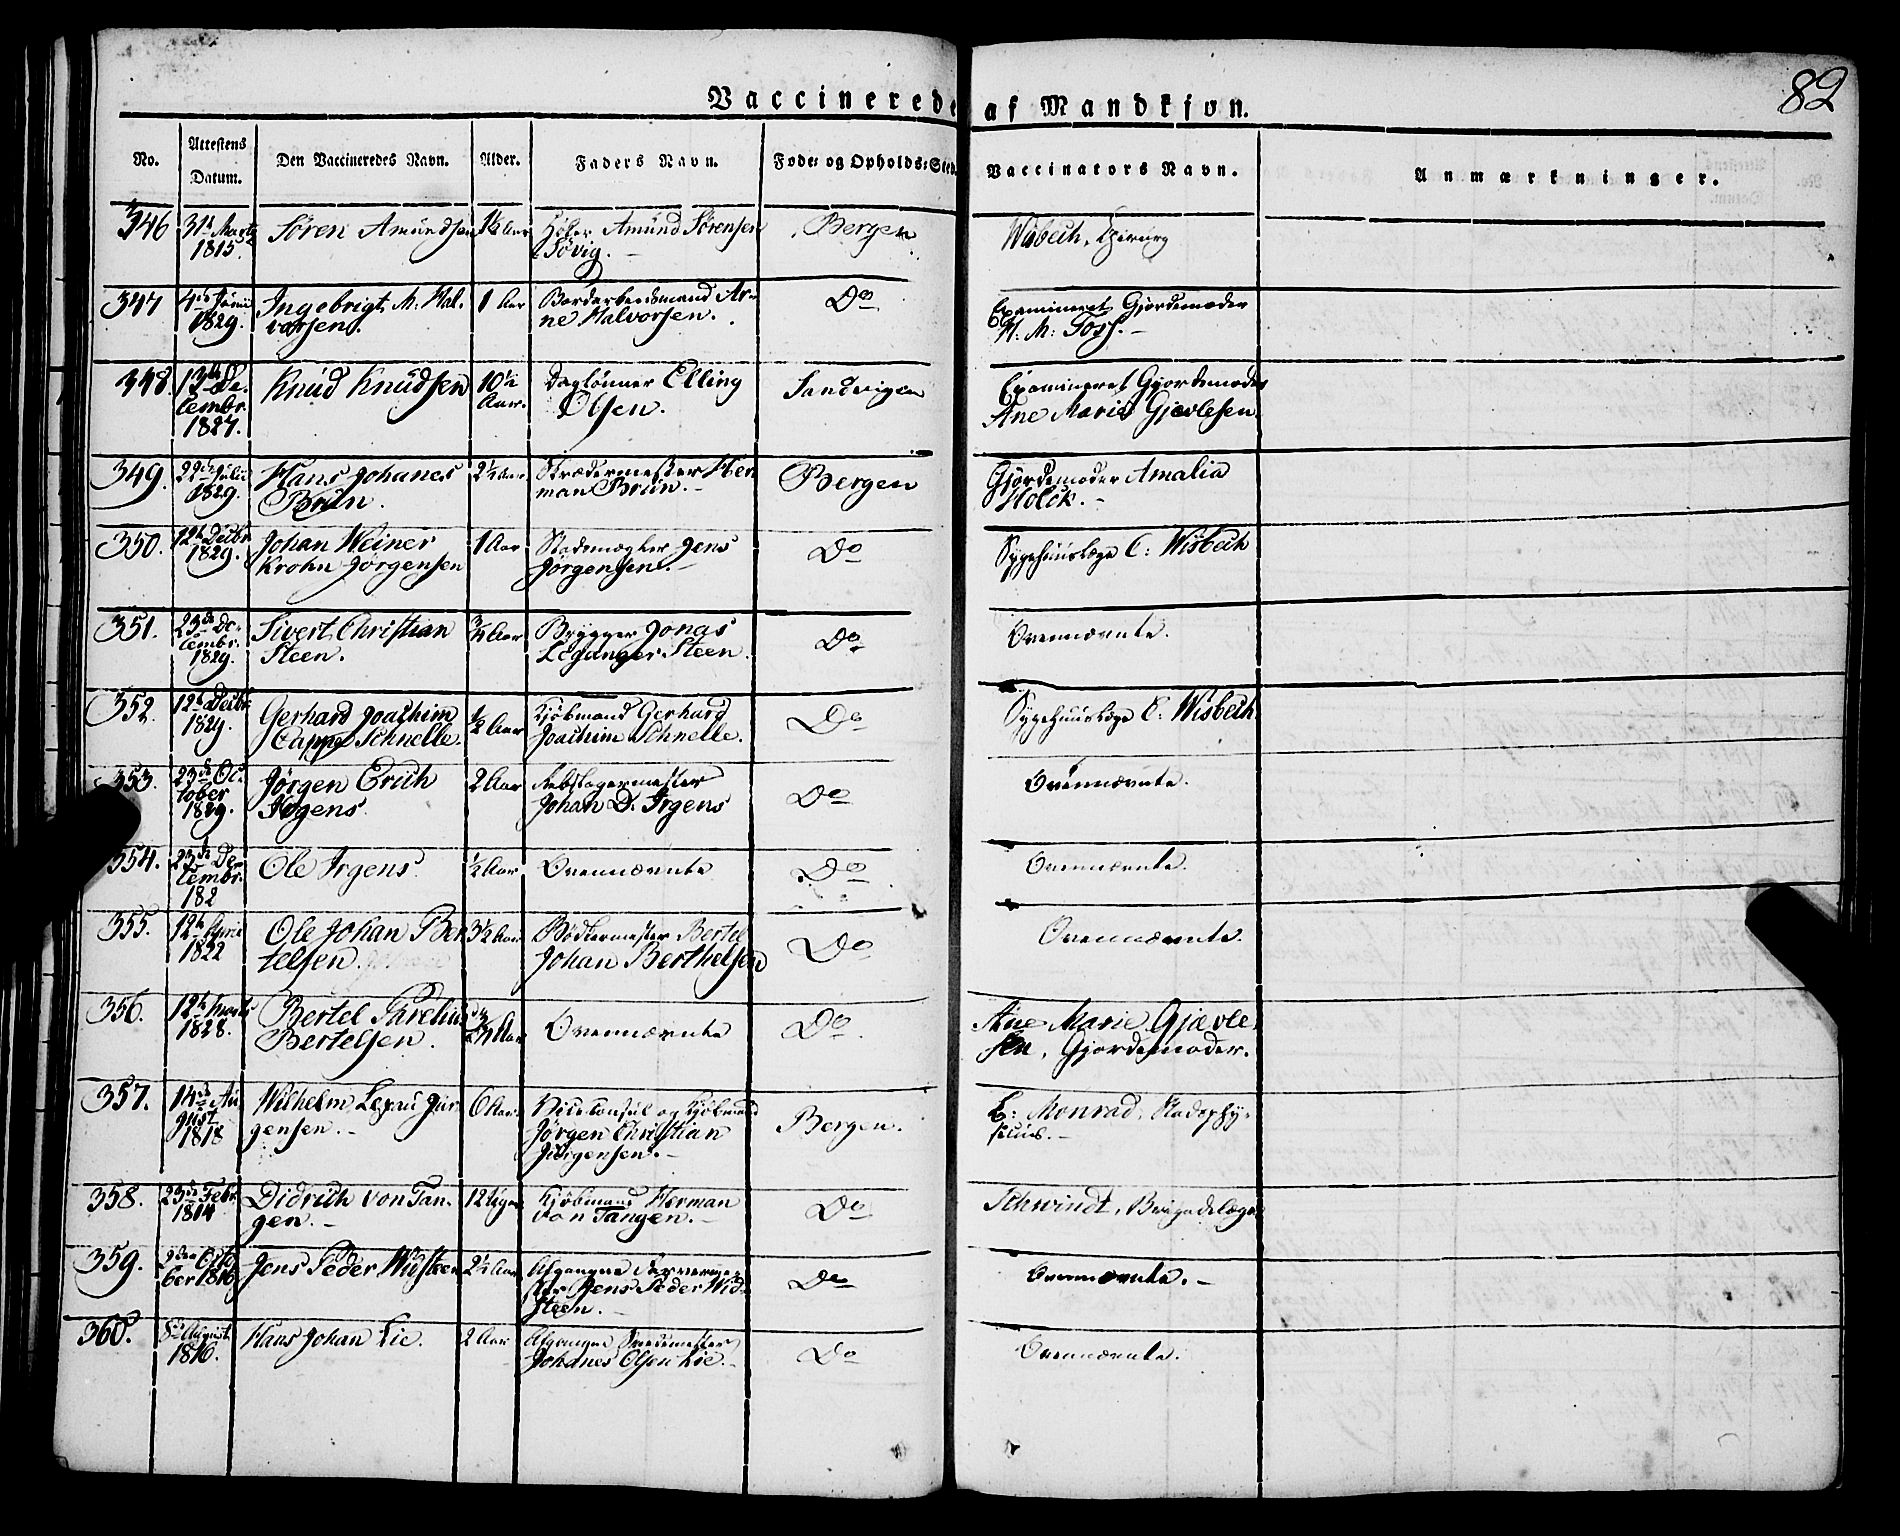 82
Vaccinerede af Mandkjøn.
No. Attestens Datum. Den Vaccineredes Navn. Alder. Faders Navn. Føde- og Opholds-Sted. Vaccinators Navn. Anmærkninger.
346 31te Marts Søren Amundsen 1½ Aar Høker Amund Sørensen Bergen Wisbech, Chirurg
1815. Søvig.
347 4de Junii Ingebrigt M. Hal- 1 Aar Bordarbeidsmand Ar- Do Examineret Gjordemoder
1829. vorsen. ne Halvorsen. H. M: Foss.
348. 13de De- Knud Knudsen 10½ Daglønner Elling Sandvigen Examineret Gjordemoder
cembr. Aar. Olsen. Ane Marie Gjævlesen.
1827.
349. 22de Julii Hans Johanes 2½ Aar Skrædermester Her- Bergen Gjordemoder Amalia
1829. Brun. man Brun. Holck.
350. 12te Decbr. Johan Weiner 1 Aar Stadsmægler Jens Do Sygehuuslæge C: Wisbech
1829. Krohn Jørgensen Jørgensen.
351. 23de De- Sivert Christian ¾ Aar Brygger Jonas Do Ovennævnte.
cembr. Steen. Leganger Steen.
1829.
352. 12te Decbr. Gerhard Joachim ½ Aar Kjøbmand Gerhard Do Sygehuuslæge C: Wisbech
1829. Cappe Schnelle. Joachim Schnelle.
353. 23de Oc- Jørgen Erich 2 Aar Rebslagermester Do Ovennævnte.
tober Irgens. Johan D. Irgens
1829.
354. 23de De- Ole Irgens. ½ Aar Ovennævnte Do Ovennævnte.
cembr.
182
355. 12te April Ole Johan Ber- 3½ Aar Bødkermester Bertel Do Ovennævnte.
1822 telsen. Johan Berthelsen
356. 12te Marts Bertel Parelius Aar Ovennævnte Do Ane Marie Gjævle-
1828. Bertelsen. sen, Gjordemoder.
357. 14de Au- Wilhelm Jür- 6 Aar. Viceconsul og Kjøbmand Bergen. L: Monrad, Stadsphy-
gust gensen. Jørgen Christian sicus.
1818 Jürgensen.
358. 23de Febr. Didrich von Tan- 12 Uger Kjøbmand Herman Do Schwindt, Brigadelæge
1814 gen. von Tangen.
359. 2den Octo- Jens Peder Widsteen 2½ Aar Afgangne Do Ovennævnte.
ber 1816 Jens Peder Wid-
steen.
360. 8de August Hans Johan Lie. 2 Aar Afgangne Do Ovennævnte.
1816. Johanes Olsen Lie.